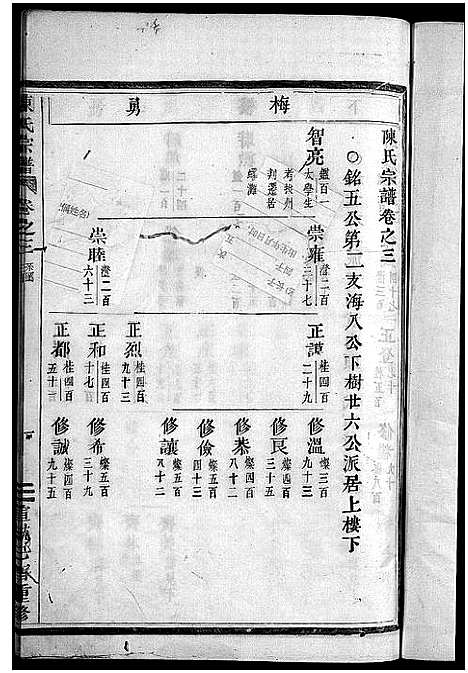 梅
勇
陳氏宗譜卷之三
○銘五公第二支海八公下樹廿六公派居上樓下
智亮
鑑百一
太學生
崇雍
澄二百
三十七
崇睦
澄二百
六十三
正諄
桂四百
二十九
正烈
桂四百
九十三
正和
桂四百
十七
正都
桂四百
五十三
修溫
燦三百
九十三
修良
燦四百
三十一
修恭
燦四百
八十二
修儉
燦五百
四十三
修讓
燦五百
八十二
修希
燦四百
三十九
修誠
燦四百
九十五
陳氏宗譜
卷之三